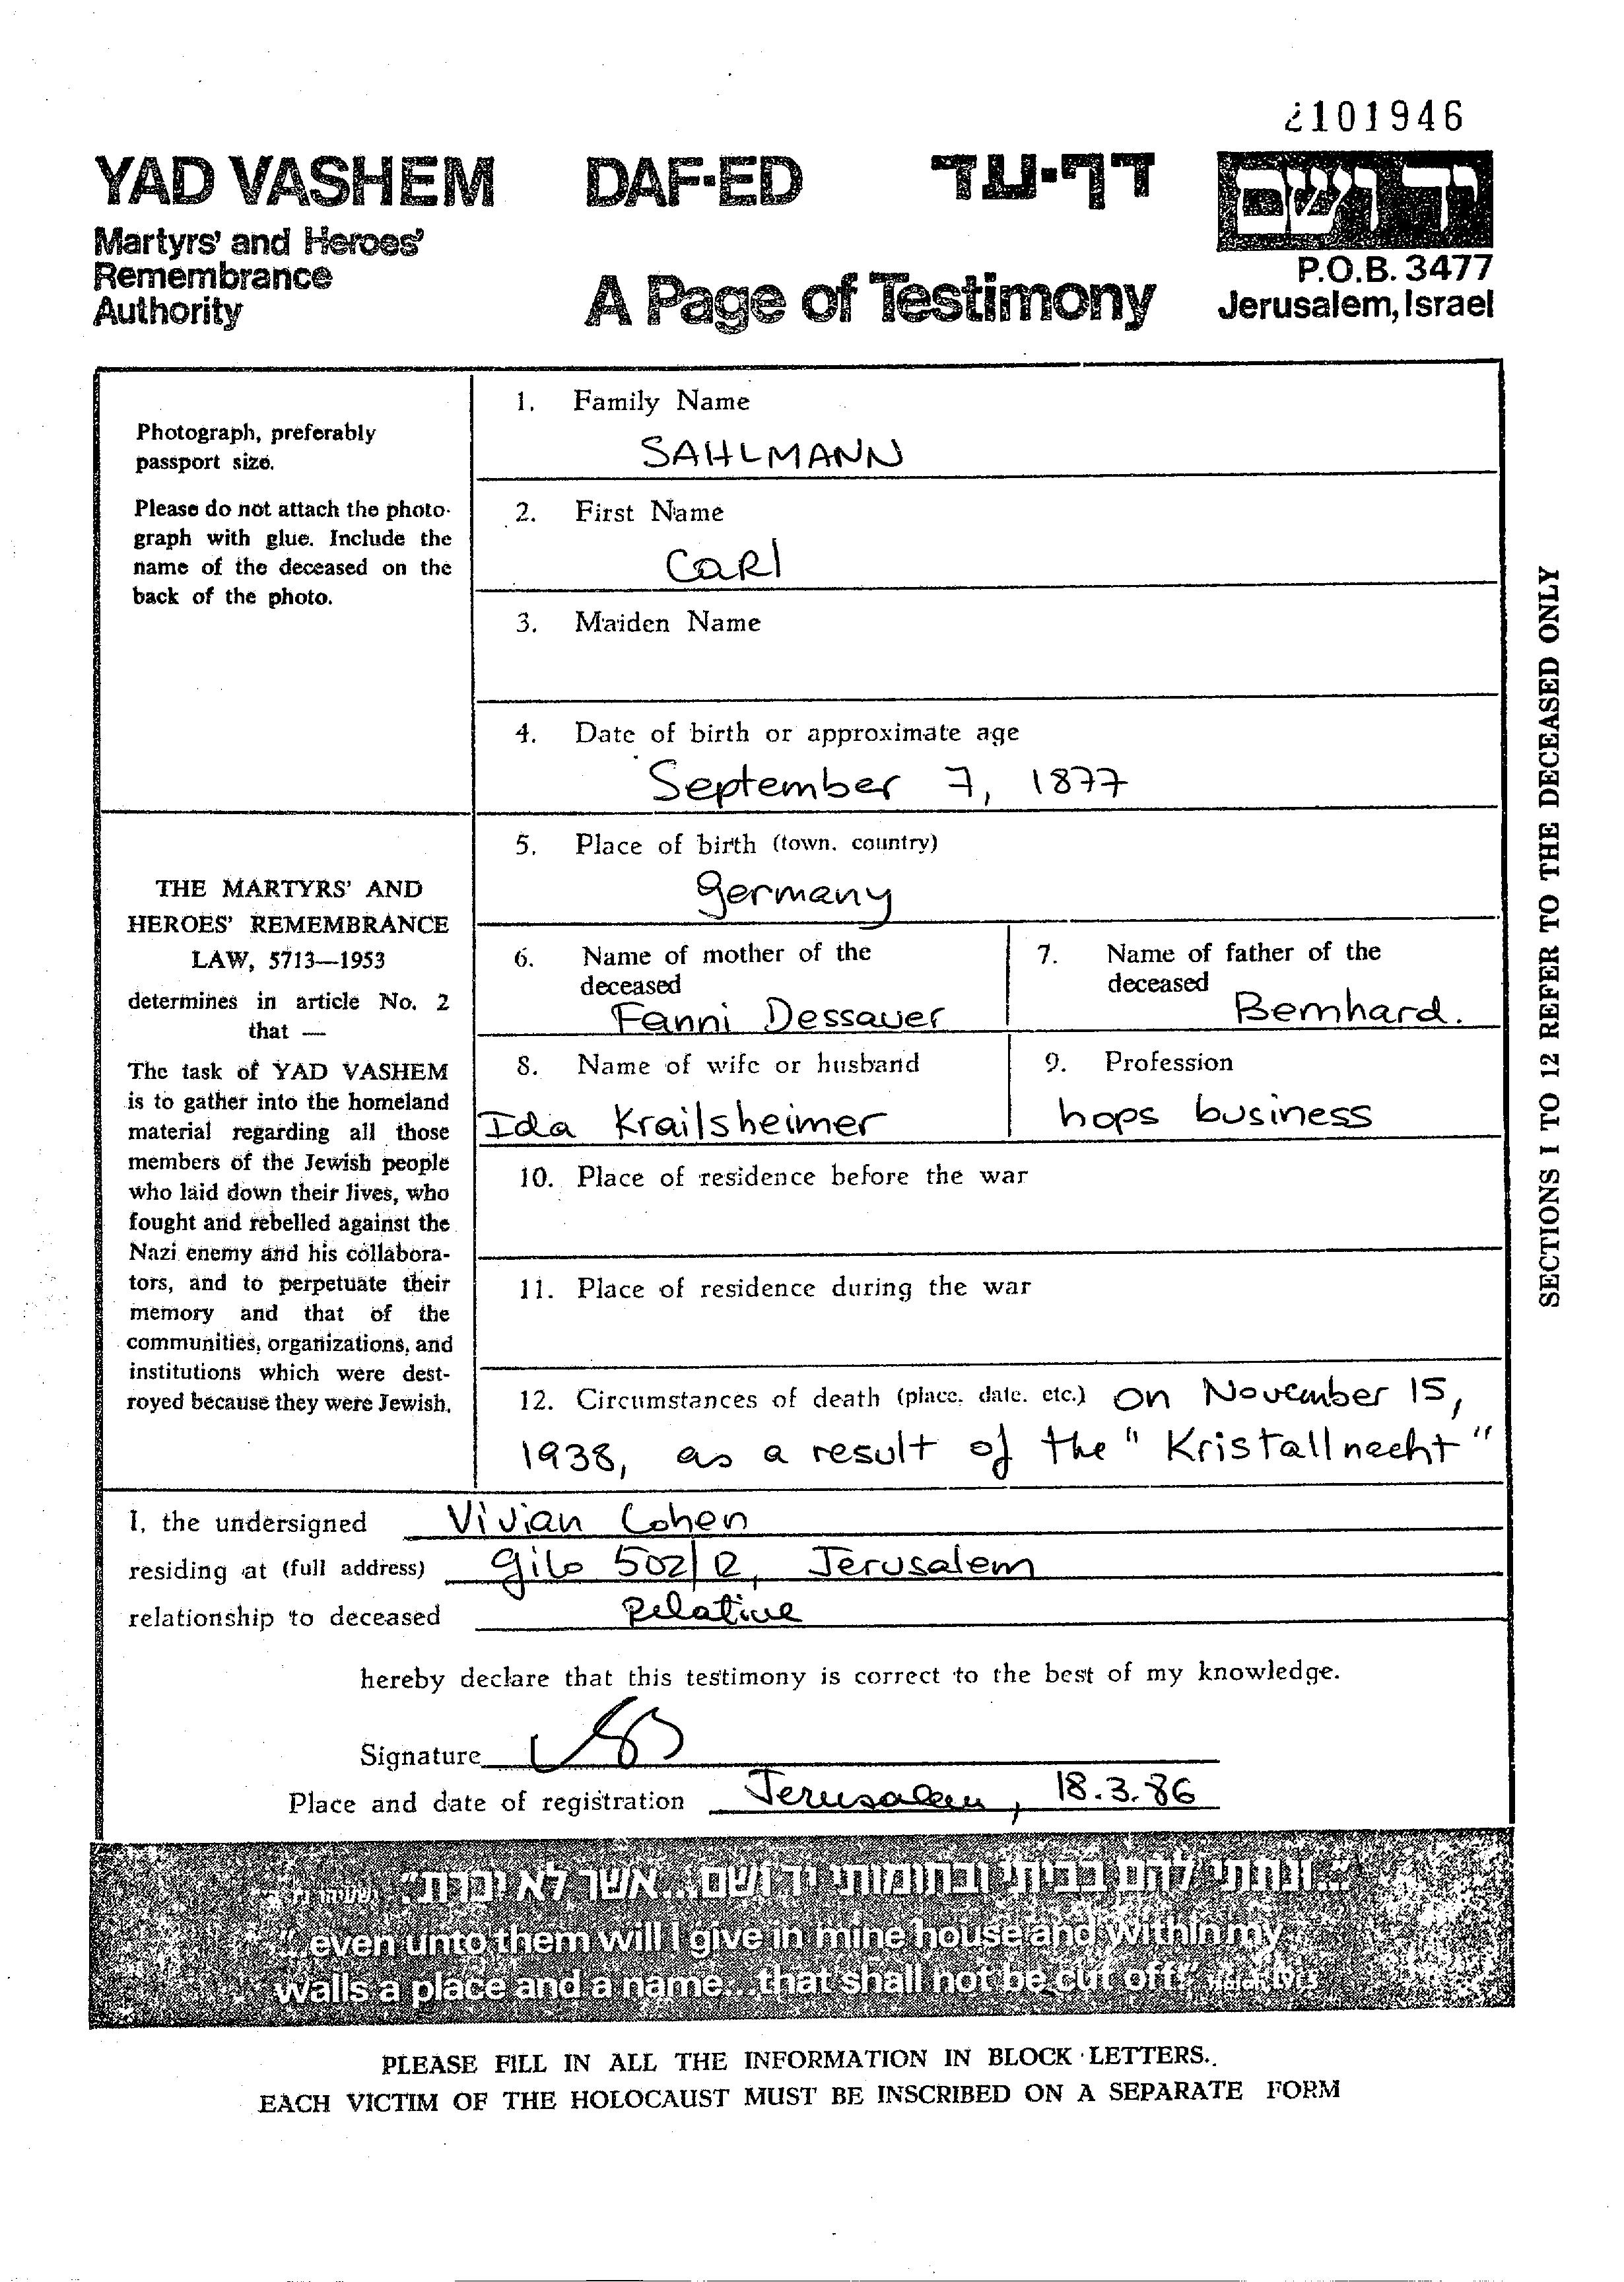 2101946
YAD VASHEM DAF-ED דף-עד ידושם
Martyrs' and Heroes'
Remembrance
Authority
A Page of Testimony
P.O.B. 3477
Jerusalem, Israel
Photograph, preferably
passport size.
Please do not attach the photo-
graph with glue. Include the
name of the deceased on the
back of the photo.
THE MARTYRS' AND
HEROES' REMEMBRANCE
LAW, 5713—1953
determines in article No. 2
that —
The task of YAD VASHEM
is to gather into the homeland
material regarding all those
members of the Jewish people
who laid down their lives, who
fought and rebelled against the
Nazi enemy and his collabora-
tors, and to perpetuate their
memory and that of the
communities, organizations, and
institutions which were dest-
royed because they were Jewish.
1. Family Name
SAHLMANN
2. First Name
Carl
3. Maiden Name
4. Date of birth or approximate age
September 7, 1877
5. Place of birth (town, country)
Germany
6. Name of mother of the
deceased
Fanni Dessauer
7. Name of father of the
deceased
Bernhard.
8. Name of wife or husband
Ida Krailsheimer
9. Profession
hops business
10. Place of residence before the war
11. Place of residence during the war
12. Circumstances of death (place, date, etc.) on November 15,
1938, as a result of the "Kristallnacht"
SECTIONS 1 TO 12 REFER TO THE DECEASED ONLY
I, the undersigned Vivian Cohen
residing at (full address) Gilo 502/12, Jerusalem
relationship to deceased Relative
hereby declare that this testimony is correct to the best of my knowledge.
Signature
Place and date of registration Jerusalem, 18.3.86
"...ונתתי להם בביתי ובחומותי יד ושם...אשר לא יכרת"
"...even unto them will I give in mine house and within my
walls a place and a name...that shall not be cut off"
PLEASE FILL IN ALL THE INFORMATION IN BLOCK LETTERS.
EACH VICTIM OF THE HOLOCAUST MUST BE INSCRIBED ON A SEPARATE FORM